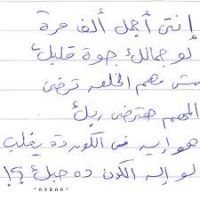 إنتى أجمل ألف مرة
لو جمالك جوة قلبك
مش مهم الخلق ترضى
المهم هترضى ربك
هو إيه فى الكون ده يغلب
لو إله الكون ده حبك ؟!